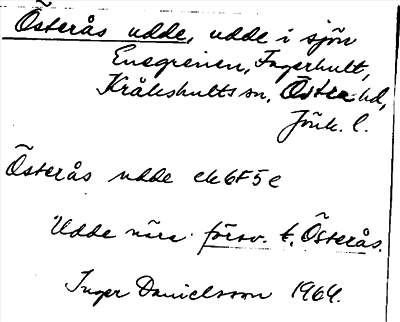 Österås udde, udde i sjön
Enegrenen, Fagerhult,
Kråkshults sn, Östra hd,
Jönk. l.
Österås udde ek6F5e
Udde nära försv. t. Österås.
Inger Danielsson 1964.